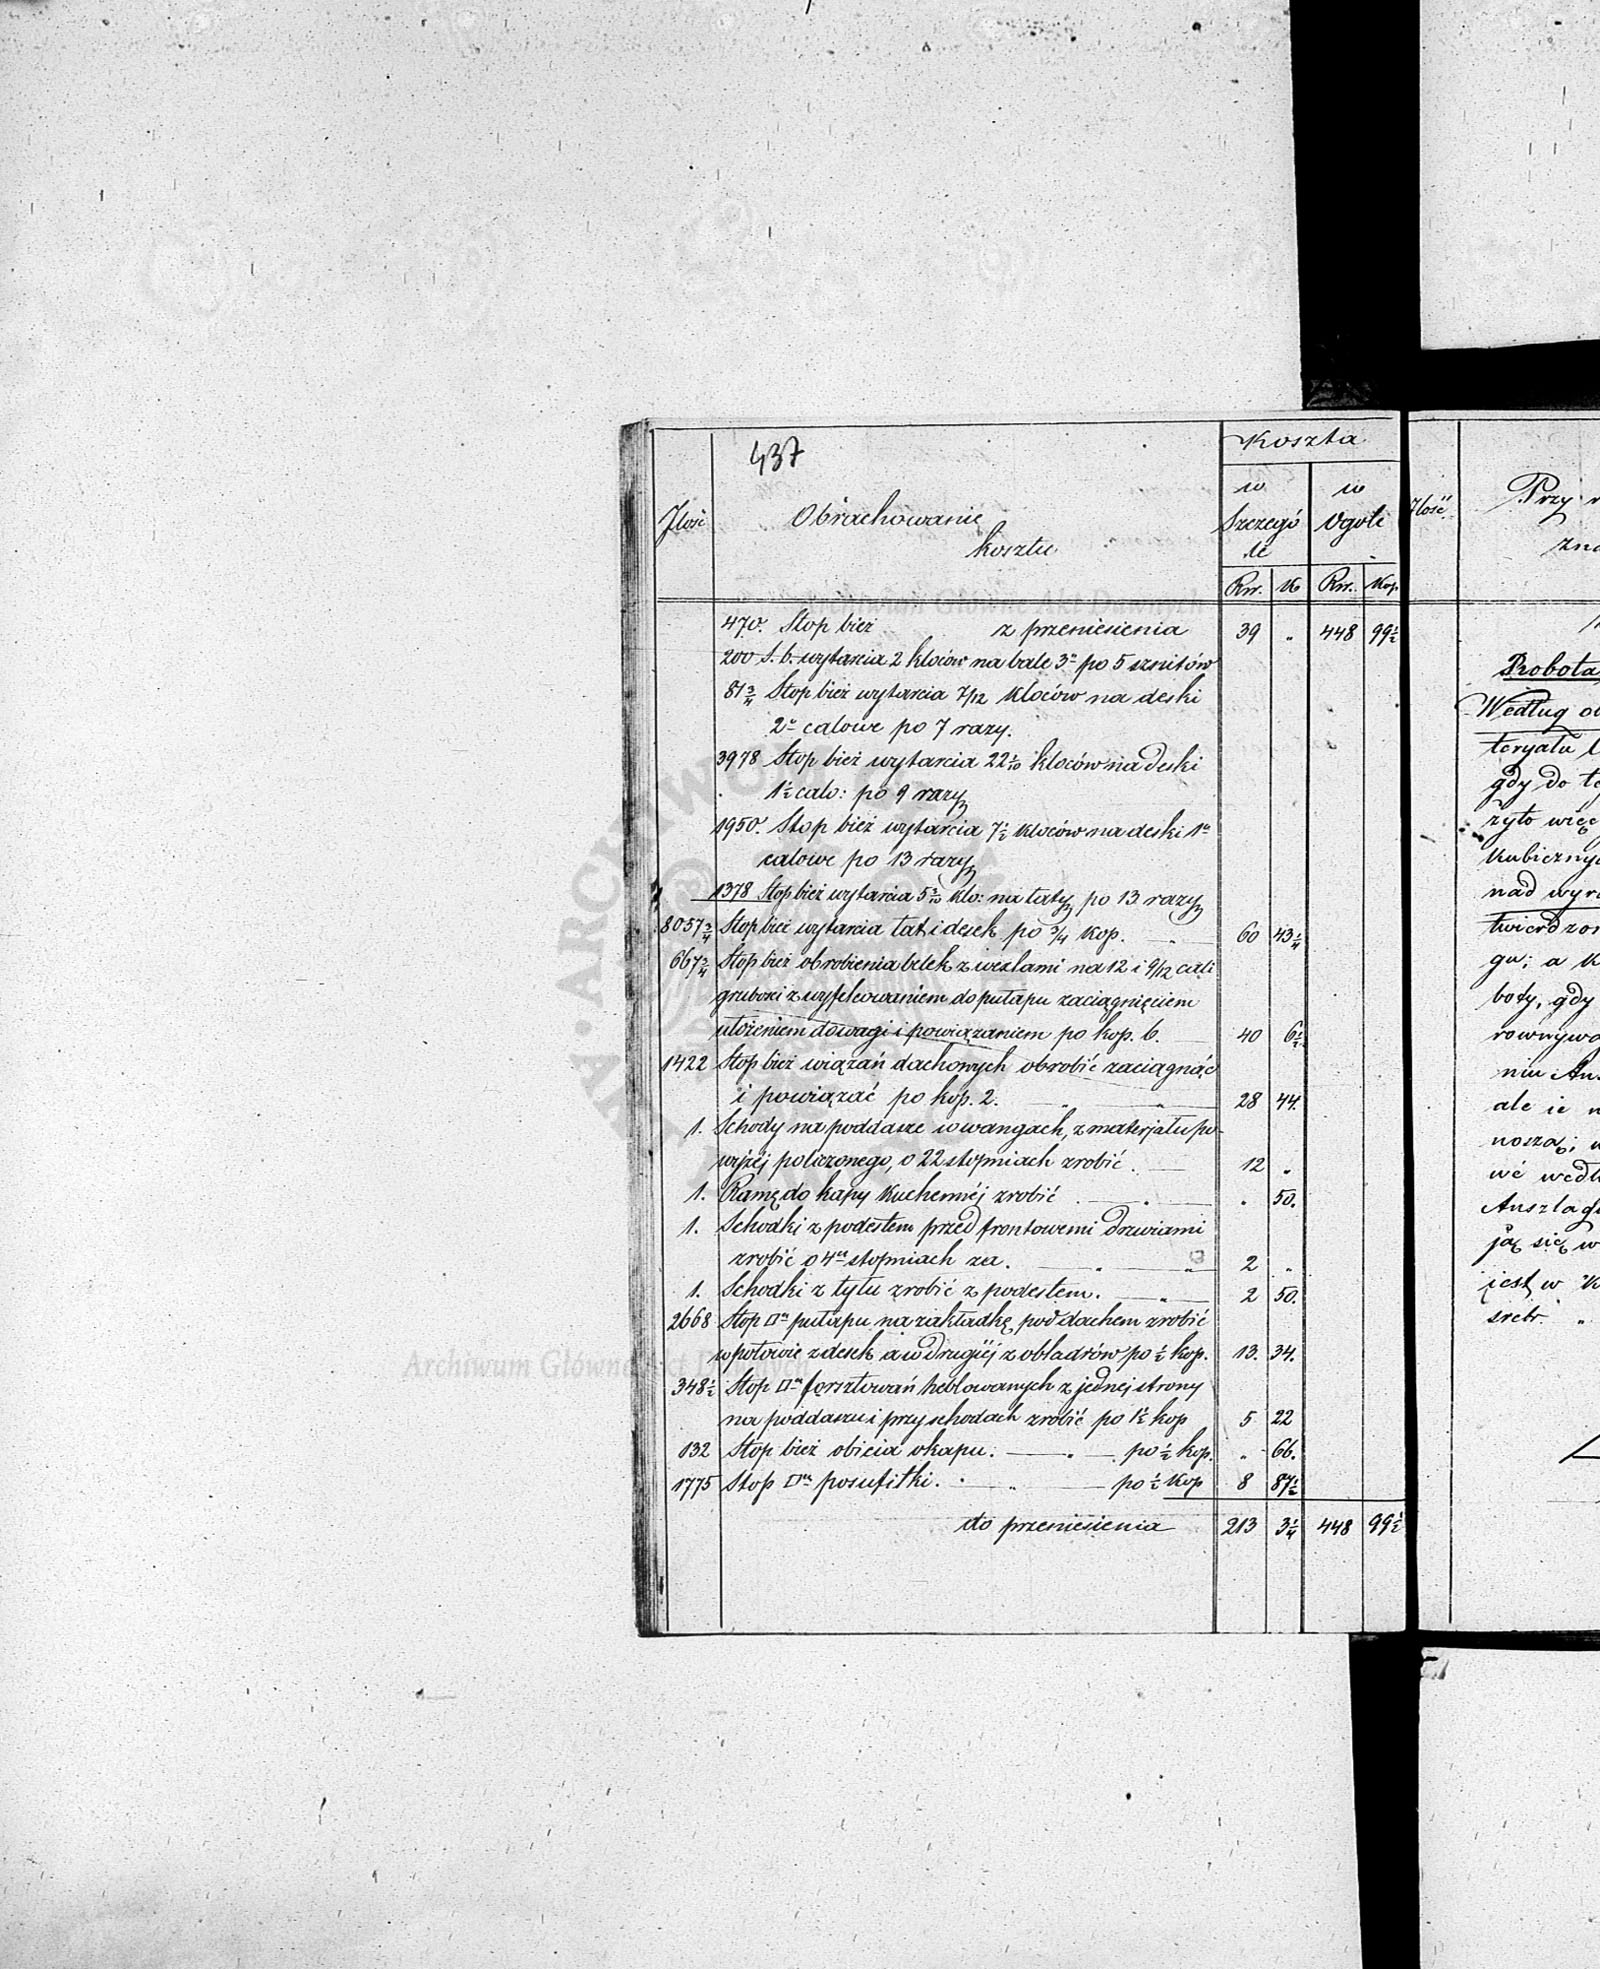 437
Koszta
Jlość Obrachowanie kosztu
w Szczegó le
w Ogole
Rsr. Ko Rsr. Kop
470. Stop bież z przeniesienia 39 " 448 99½
200 S. b. wytarcia 2 kloców na bale 3" po 5 sznitów
81¾ Stop bież wytarcia 7/12 kloców na deski
2" calowe po 7 razy.
3978 Stop bież wytarcia 22 1/10 kloców na deski
1½ calo: po 9 razy
1950. Stop bież wytarcia 7½ kloców na deski 1"
calowe po 13 razy
1378 Stop bież wytarcia 5 3/10 klo: na łaty po 13 razy
8057¾ Stop bież wytarcia łat i desek po ¾ kop. " 60 43¼
667¾ Stop bież obrobienia belek z wixlami na 12 i 9/12 cali
grubości z wyfelcowaniem do pułapu zaciągnięciem
ułożeniem do wagi i powiązaniem po kop. 6. 40 6½
1422 Stop bież wiązań dachowych obrobić zaciągnąć
i powiązać po kop. 2. " " 28 44.
1. Schody na poddasze w wangach, z materjału po-
wyżej policzonego, o 22 stopniach zrobić. 12 "
1. Ramę do kapy kuchennéj zrobić . " . 50.
1. Schodki z podestem przed frontowemi drzwiami
zrobić o 4ch stopniach za. " " 2 "
1. Schodki z tyłu zrobić z podestem. " 2 50.
2668 Stop □ch pułapu na zakładkę pod dachem zrobić
w połowie z desek a w drugiéj z obladrów po ½ kop. 13. 34.
348½ Stop □ch forsztowań heblowanych z jednej strony
na poddaszu i przy schodach zrobić po 1½ kop 5 22
132 Stop bież obicia okapu. " po ½ kop. " 66.
1775 Stop □ch posufitki. " po ½ kop 8 87½
do przeniesienia 213 3¼ 448 99½
Jlość
Przy
Robota
Według
teryału
gdy do
żyło więc
nad
boty, gdy
ale ie
noszą;
Auszlag
ją się w
iest w
srebr. "
Archiwum Główne Akt Dawnych
Archiwum Główne Akt Dawnych